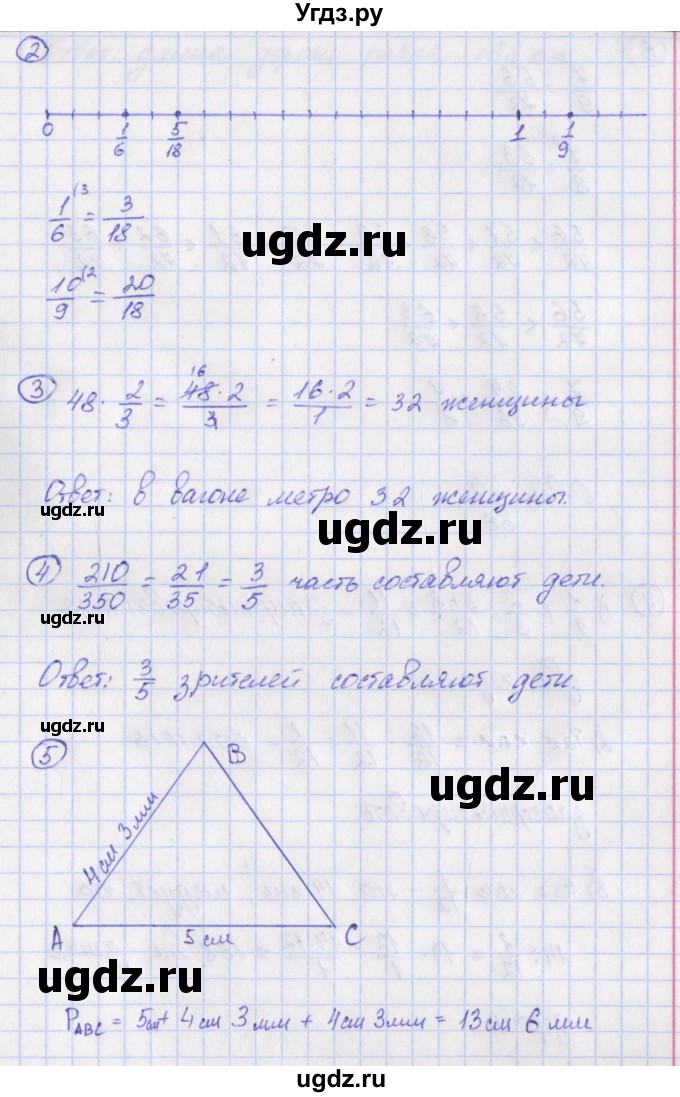 Угдз.ру
2
0 1/6 5/18 1 1/9
1/6 (3 = 3/18
ugdz.ru
10/9 (2 = 20/18
3 48 · 2/3 = 16 48 · 2 / 3 = 16 · 2 / 1 = 32 женщины
Ответ: в вагоне метро 32 женщины.
ugdz.ru
ugdz.ru
4 210/350 = 21/35 = 3/5 часть составляют дети.
Ответ: 3/5 зрителей составляют дети.
ugdz.ru
5
B
ugdz.ru
4 см 3 мм
A 5 см C
ugdz.ru
P ABC = 5 см + 4 см 3 мм + 4 см 3 мм = 13 см 6 мм
ugdz.ru